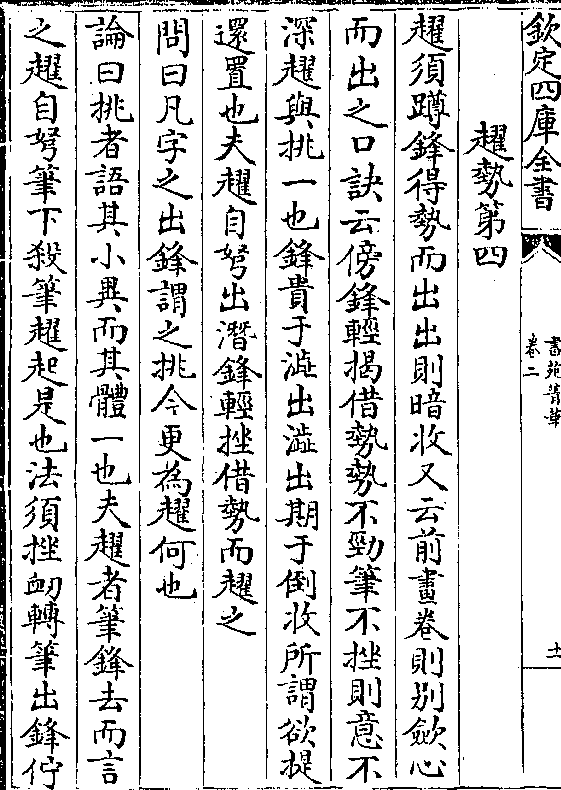 欽定四庫全書
書苑菁華
卷二
十
趯勢第四
趯須蹲鋒得勢而出出則暗收又云前畫卷則别斂心
而出之口訣云傍鋒輕揭借勢勢不勁筆不挫則意不
深趯與挑一也鋒貴于澁出澁出期于倒收所謂欲提
還置也夫趯自努出潛鋒輕挫借勢而趯之
問曰凡字之出鋒謂之挑今更為趯何也
論曰挑者語其小異而其體一也夫趯者筆鋒去而言
之趯自努筆下殺筆趯起是也法須挫衂轉筆出鋒佇